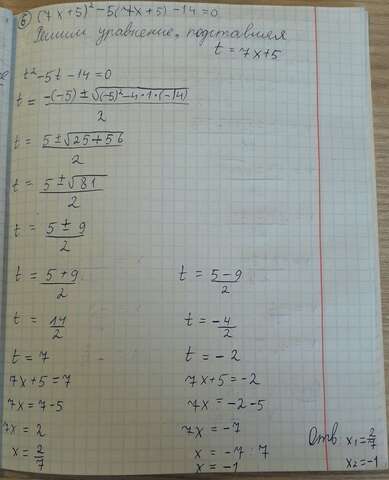 ⑥ (7x+5)²-5(7x+5)-14=0
Решим уравнение, подставляя
t=7x+5
t²-5t-14=0
t=(-(-5)±√((-5)²-4·1·(-14)))/2
t=(5±√(25+56))/2
t=(5±√81)/2
t=(5±9)/2
t=(5+9)/2 t=(5-9)/2
t=14/2 t=-4/2
t=7 t=-2
7x+5=7 7x+5=-2
7x=7-5 7x=-2-5
7x=2 7x=-7
x=2/7 x=-7:7
x=-1
Отв x₁=2/7
x₂=-1